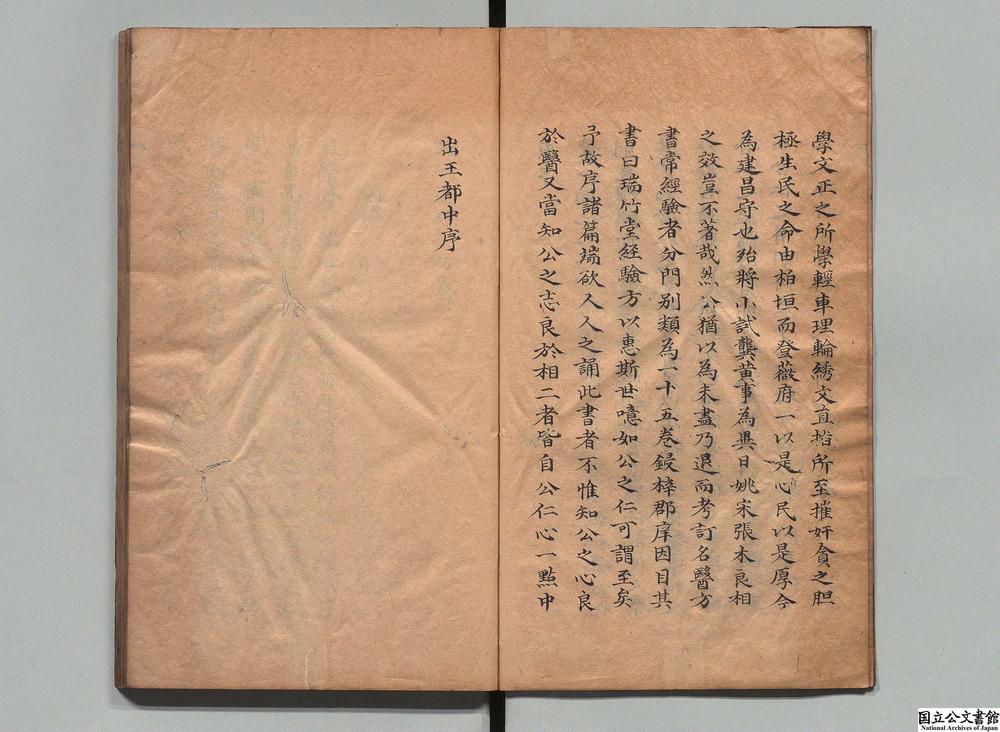 學文正之所學輕車理輪綉文直指所至摧奸貪之胆
極生民之命由柏垣而登薇府一以是心民以是厚今
為建昌守也殆將小試龔黄事為異日姚宋張本良相
之效豈不著哉然公猶以為未盡乃退而考訂名醫方
書常經驗者分門別類為一十五巻鋟梓郡庠因目其
書曰瑞竹堂經驗方以惠斯世噫如公之仁可謂至矣
予故序諸篇端欲人人之誦此書者不惟知公之心良
於醫又當知公之志良於相二者皆自公仁心一點中
出王都中序
国立公文書館
National Archives of Japan